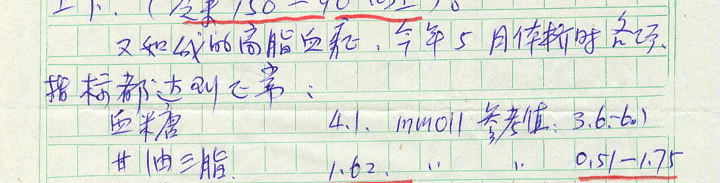 上下.(过来150-90以上)。
又如我的高脂血症、今年5月体检时各项
指标都达到正常:
血糖 4.1. mmol1 参考值:3.6-6.1
甘油三脂. 1.62. " " 0.51-1.75